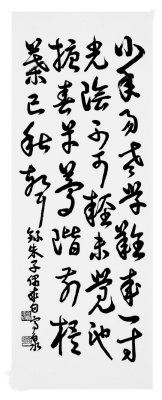 少年易老学难成一寸
光阴不可轻未觉池
塘春草梦阶前梧
叶已秋声
录朱子偶成句